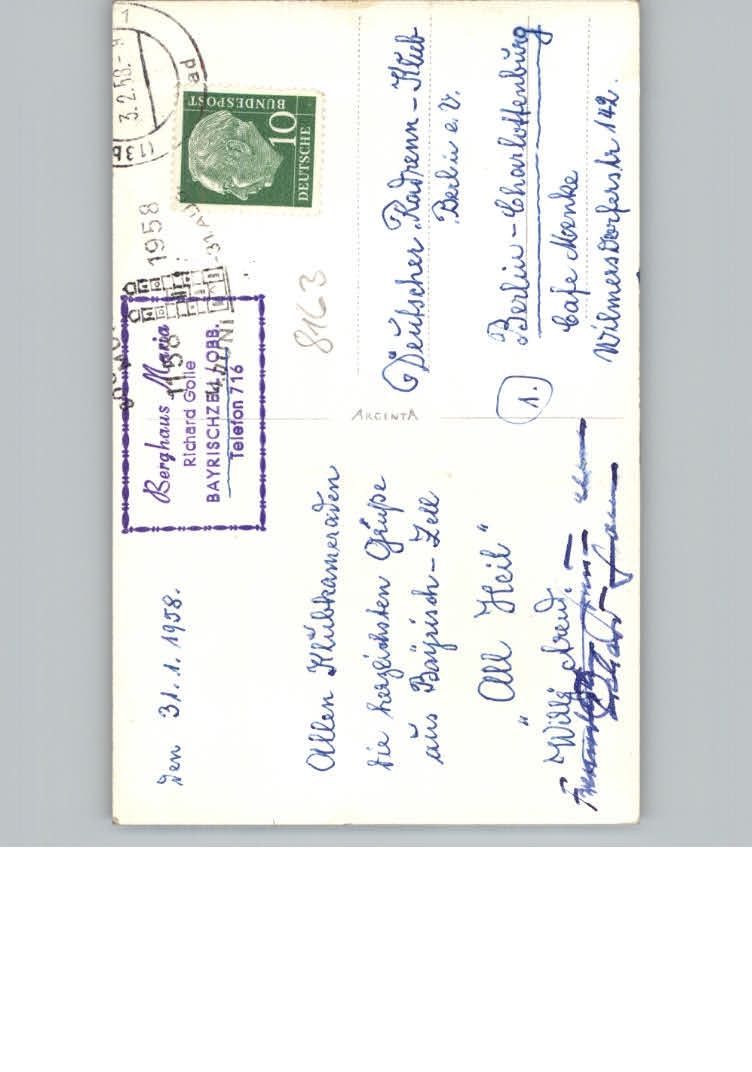 Berghaus Maria
Richard Golle
BAYRISCHZELL/OBB.
Telefon 716
den 31.1.1958.
Allen Klubkameraden
die herzlichsten Grüße
aus Bayrisch-Zell
"All Heil"
Willi
ARGENTA
3.2.58.-9
(13b
ad
1958
1158
31 AUG
JUNI
DEUTSCHE
BUNDESPOST
10
8163
Deutscher Radrenn-Klub
Berlin e.V.
Berlin-Charlottenburg
Cafe Menke
Wilmersdorferstr 142.
1.